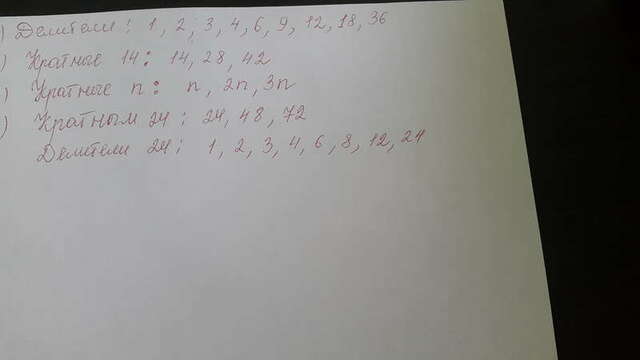 ) Делители: 1, 2, 3, 4, 6, 9, 12, 18, 36
) Кратное 14: 14, 28, 42
) Кратное n: n, 2n, 3n
) Кратным 24: 24, 48, 72
Делители 24: 1, 2, 3, 4, 6, 8, 12, 24